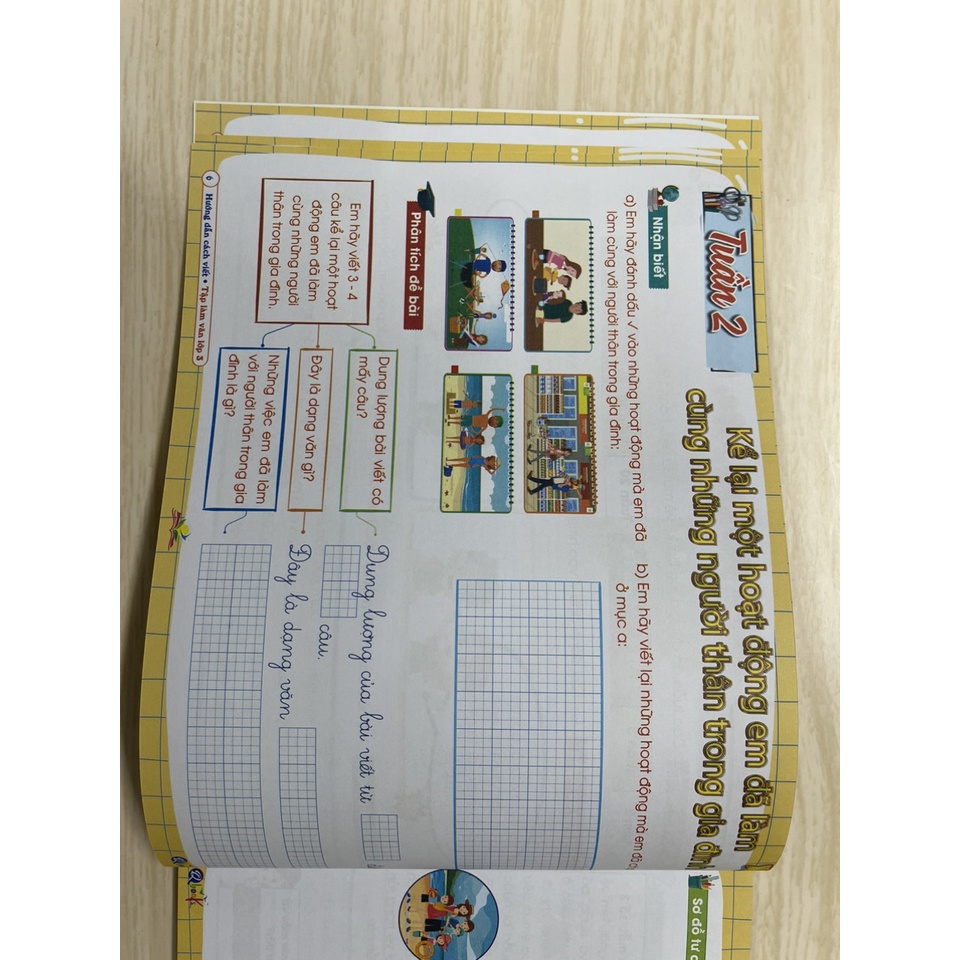 Tuần 2
Kể lại một hoạt động em đã làm
cùng những người thân trong gia
Nhận biết
a) Em hãy đánh dấu √ vào những hoạt động mà em đã
làm cùng với người thân trong gia đình:
b) Em hãy viết lại những hoạt động mà em đã
ở mục a:
Phân tích đề bài
Em hãy viết 3 - 4
câu kể lại một hoạt
động em đã làm
cùng những người
thân trong gia đình.
Dung lượng bài viết có
mấy câu?
Dung lượng của bài viết từ
câu.
Đây là dạng văn gì?
Đây là dạng văn
Những việc em đã làm
với người thân trong gia
đình là gì?
6 Hướng dẫn cách viết • Tập làm văn lớp 3
Sơ đồ tư